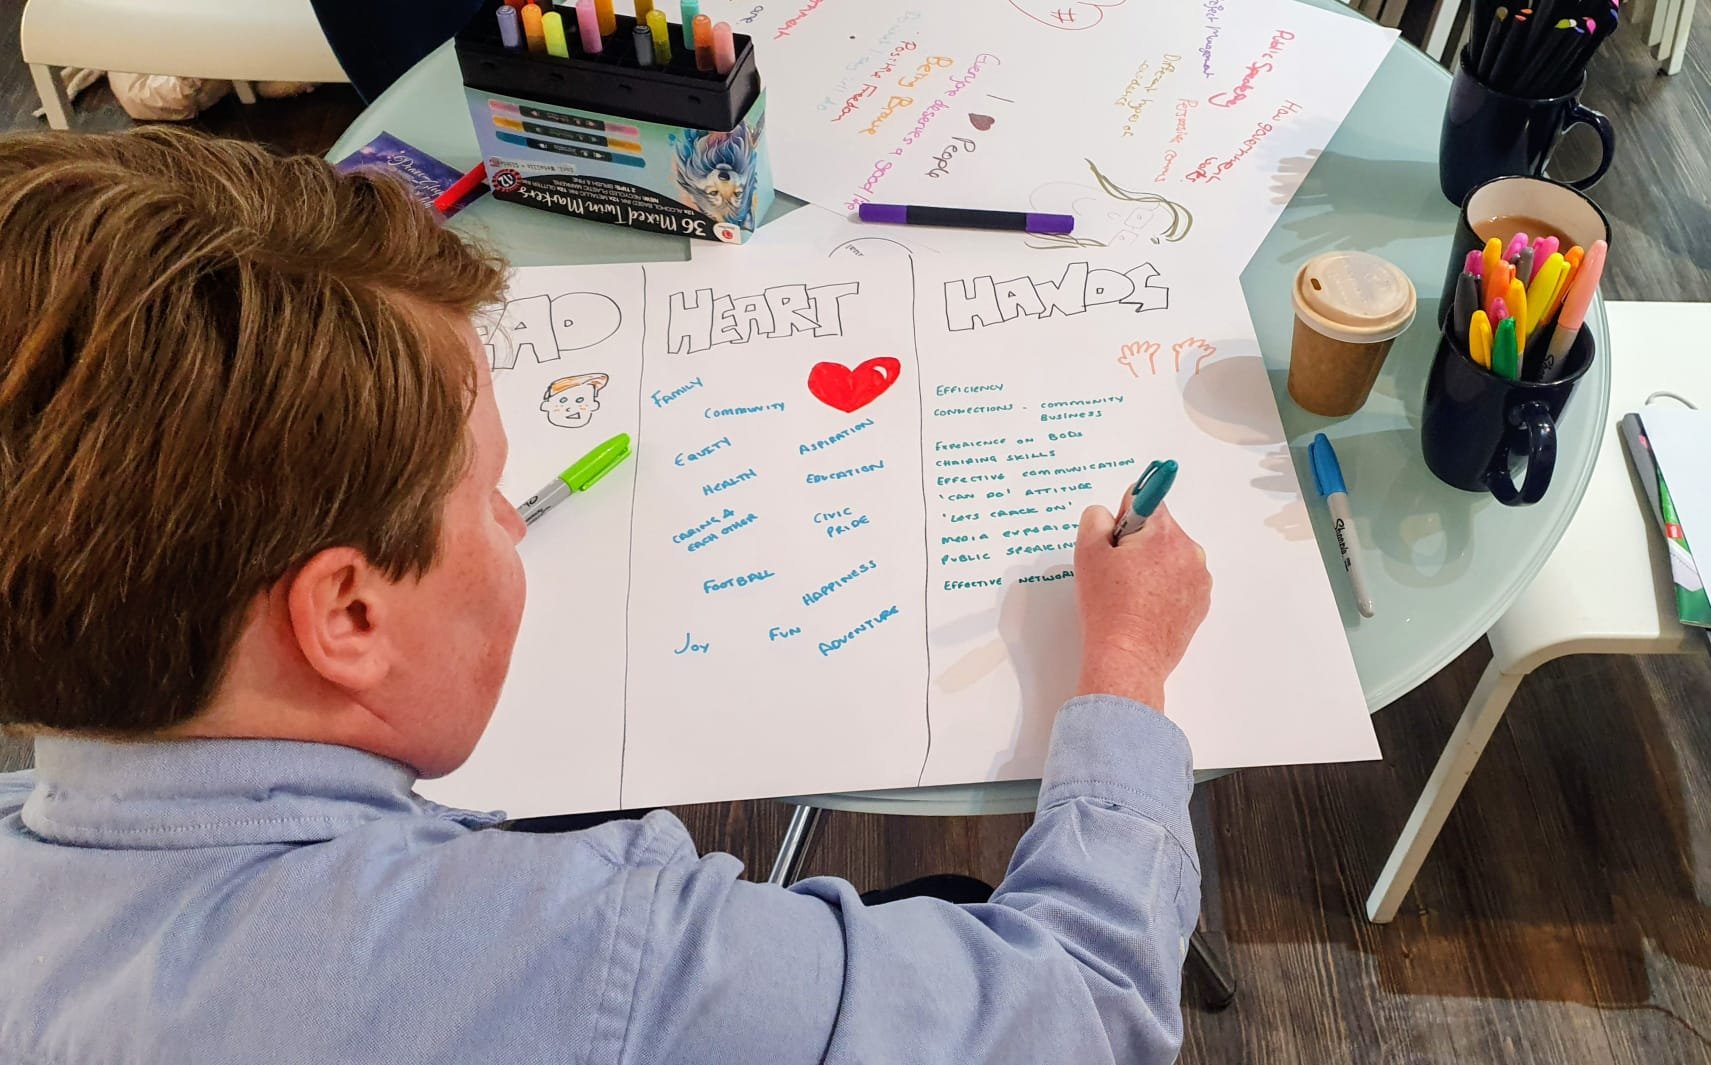 EAD
HEART
FAMILY
COMMUNITY
EQUITY
ASPIRATION
HEALTH
EDUCATION
CARING 4
EACH OTHER
CIVIC
PRIDE
FOOTBALL
HAPPINESS
JOY
FUN
ADVENTURE
HANDS
EFFICIENCY
CONNECTIONS - COMMUNITY
BUSINESS
EXPERIENCE ON BODS
CHAIRING SKILLS
EFFECTIVE COMMUNICATION
'CAN DO' ATTITUDE
'LETS CRACK ON'
MEDIA EXPERIEN
PUBLIC SPEAKIN
EFFECTIVE NETWORK
36 Mixed Twin Markers
I People
Everyone deserves a good life
Being Brave
Positive Freedom
#
Project Management
Public Speaking
How government
works
Different types of
Sharpie